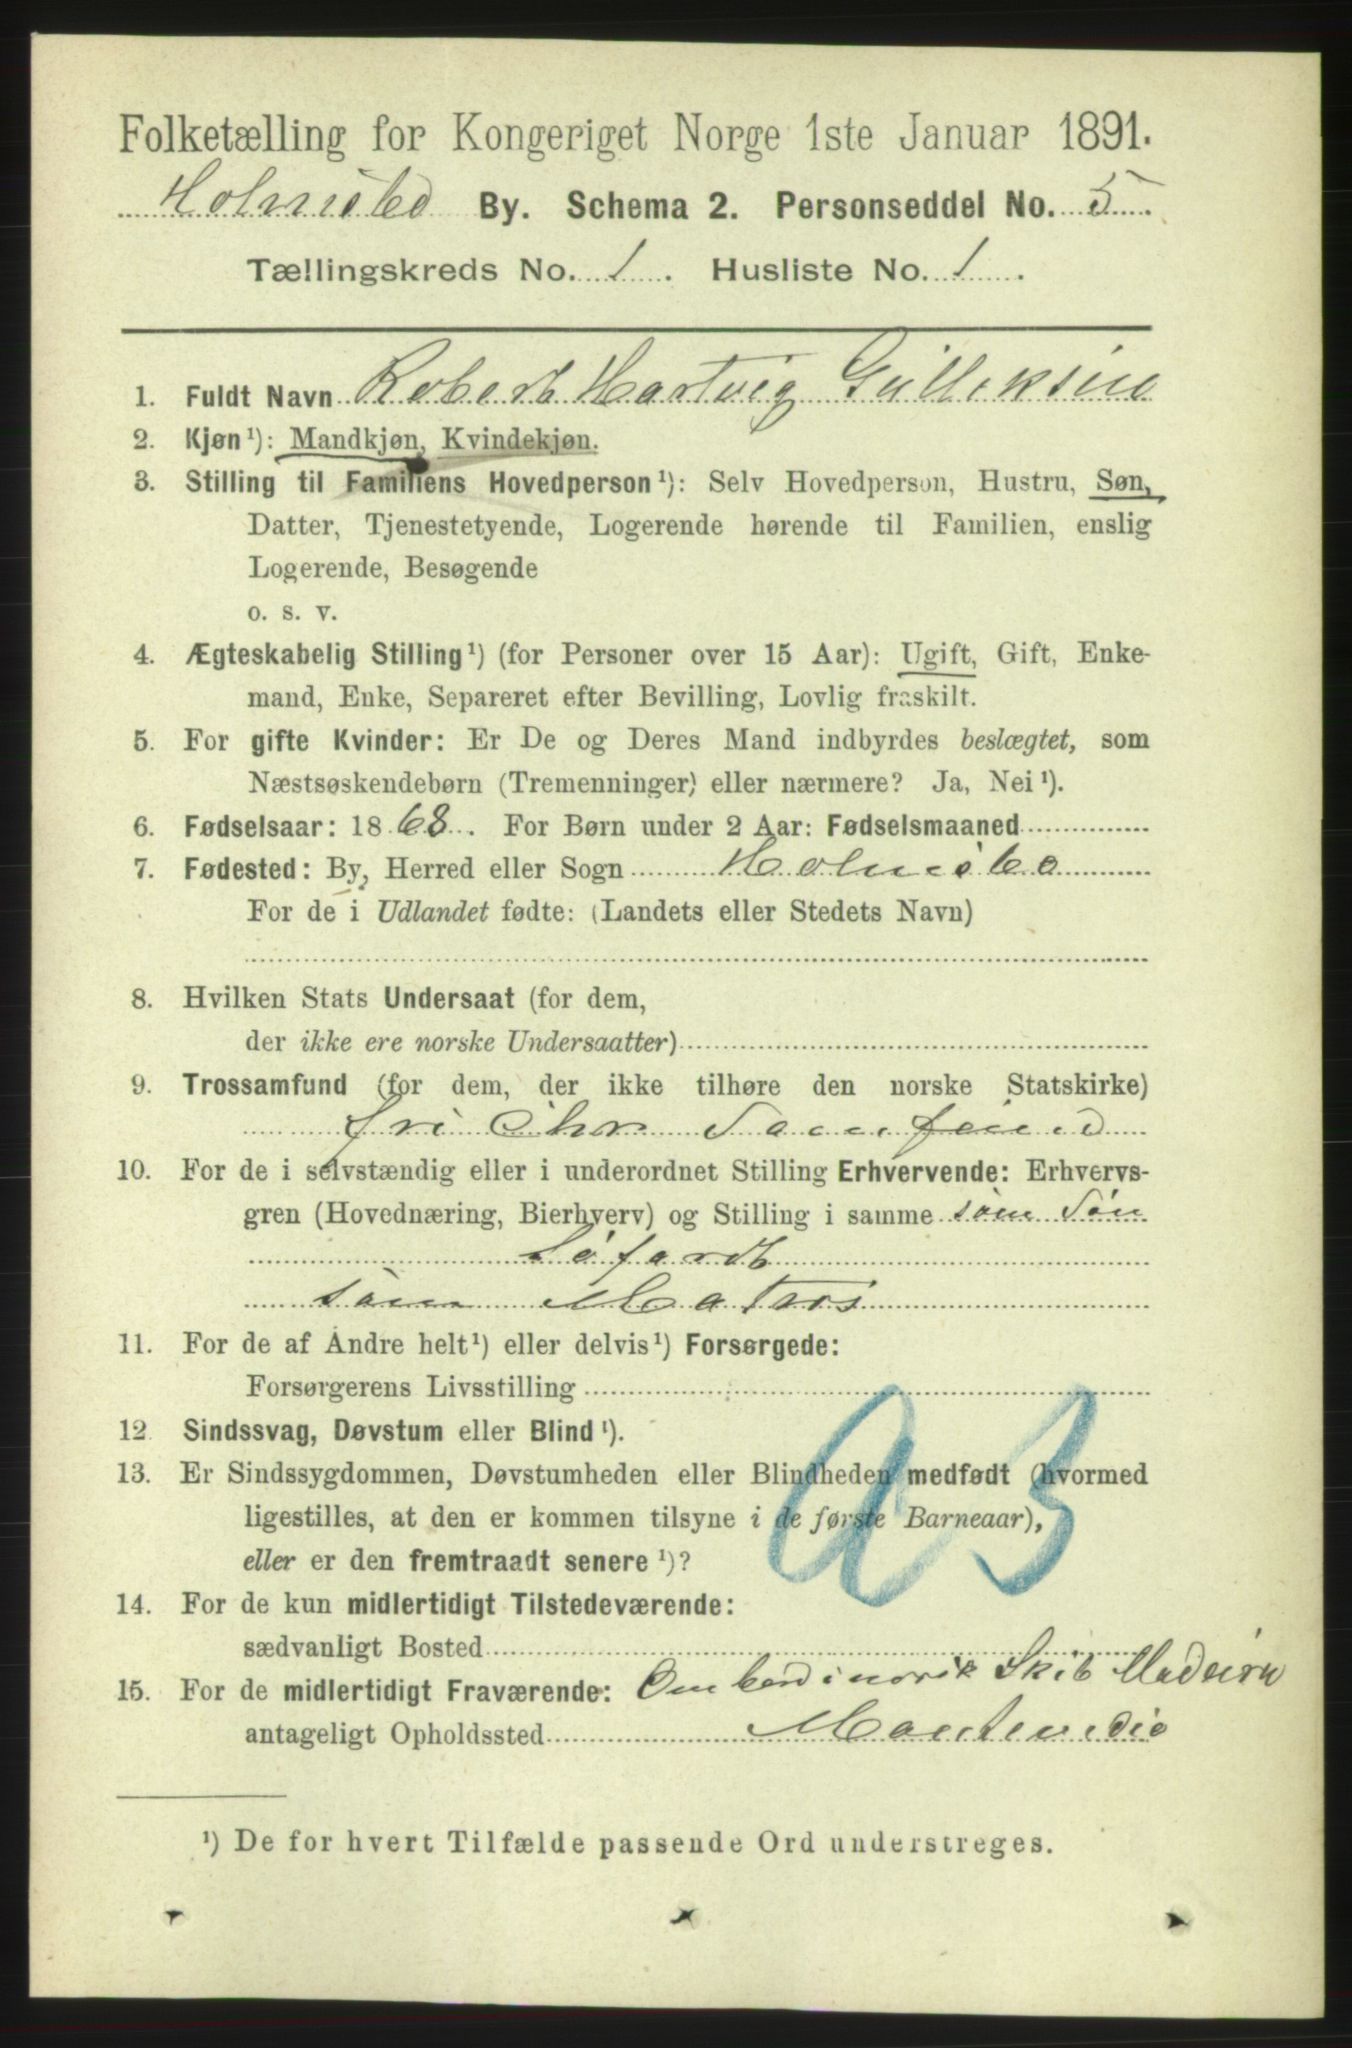 Folketælling for Kongeriget Norge 1ste Januar 1891.
Holmsbo By. Schema 2. Personseddel No. 5.
Tællingskreds No. 1. Husliste No. 1.
1. Fuldt Navn Robert Hartvig Gulleksen
2. Kjøn¹): Mandkjøn, Kvindekjøn.
3. Stilling til Familiens Hovedperson¹): Selv Hovedperson, Hustru, Søn,
Datter, Tjenestetyende, Logerende hørende til Familien, enslig
Logerende, Besøgende
o. s. v.
4. Ægteskabelig Stilling¹) (for Personer over 15 Aar): Ugift, Gift, Enke-
mand, Enke, Separeret efter Bevilling, Lovlig fraskilt.
5. For gifte Kvinder: Er De og Deres Mand indbyrdes beslægtet, som
Næstsøskendebørn (Tremenninger) eller nærmere? Ja, Nei¹).
6. Fødselsaar: 1868. For Børn under 2 Aar: Fødselsmaaned
7. Fødested: By, Herred eller Sogn Holmsbo
For de i Udlandet fødte: (Landets eller Stedets Navn)
8. Hvilken Stats Undersaat (for dem,
der ikke ere norske Undersaatter)
9. Trossamfund (for dem, der ikke tilhøre den norske Statskirke)
fri Chr Samfund
10. For de i selvstændig eller i underordnet Stilling Erhvervende: Erhvervs-
gren (Hovednæring, Bierhverv) og Stilling i samme som Søn
Søfardt
som Matros
11. For de af Andre helt¹) eller delvis¹) Forsørgede:
Forsørgerens Livsstilling
12. Sindssvag, Døvstum eller Blind¹).
13. Er Sindssygdommen, Døvstumheden eller Blindheden medfødt (hvormed
ligestilles, at den er kommen tilsyne i de første Barneaar),
eller er den fremtraadt senere¹)?
14. For de kun midlertidigt Tilstedeværende:
sædvanligt Bosted
15. For de midlertidigt Fraværende: Om bord i norsk Skib Madeira
antageligt Opholdssted Montevidio
¹) De for hvert Tilfælde passende Ord understreges.